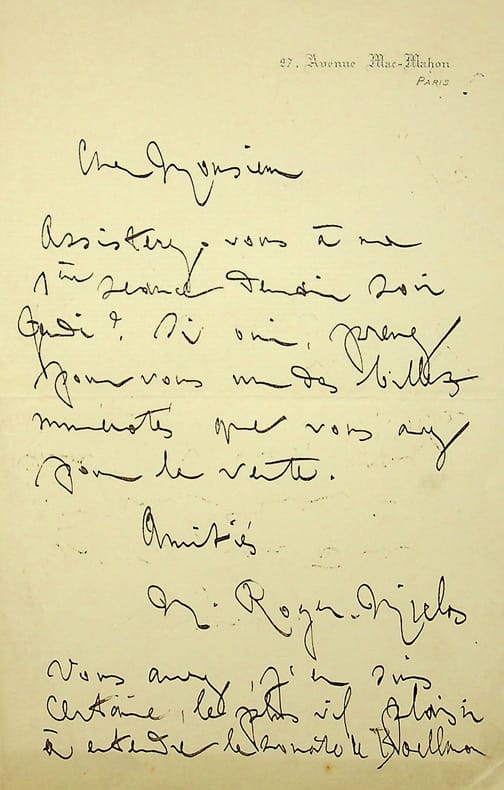 27, Avenue Mac-Mahon
PARIS
Cher Monsieur
Assisterez-vous à ma
1ère séance demain soir
Jeudi ? Si oui, prenez
pour vous un des billets
numérotés que vous avez
pour la vente.
Amitiés
M. Roger-Miclos
Vous aurez, j'en suis
certaine, le plus vif plaisir
à entendre la sonate de Boellman